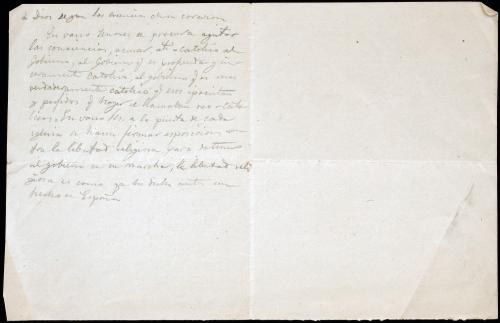 á Dios segun las creencias de su corazon
En vano Señores se procura agitar
las conciencias, acusar, de catolico al
gobierno, al gobierno q es profunda y sin
ceramente catolico, al gobierno q es mas
verdaderamente catolico q esos
y q se llaman neo-cato
licos, En vano Sres, a la puerta de cada
iglesia se hacen firmar exposiciones con
tra la libertad religiosa para detener
al gobierno en su marcha, la libertad reli
giosa es como ya he dicho antes un
hecho en España